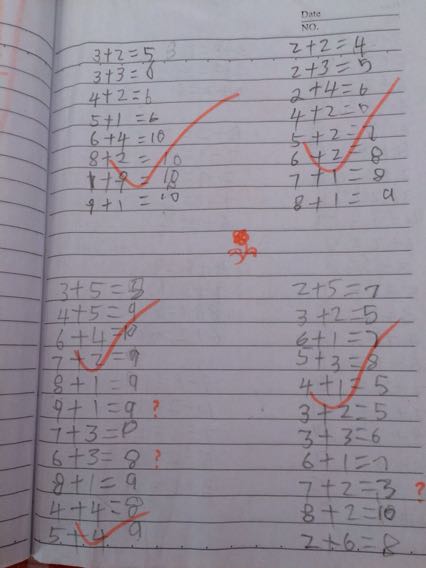 Date
NO.
3+2=5
3+3=6
4+2=6
5+1=6
6+4=10
8+2=10
1+9=10
9+1=10
2+2=4
2+3=5
2+4=6
4+2=6
5+2=7
6+2=8
7+1=8
8+1=9
3+5=8
4+5=9
6+4=10
7+2=9
8+1=9
9+1=9 ?
7+3=0
6+3=8 ?
8+1=9
4+4=8
5+4 9
2+5=7
3+2=5
6+1=7
5+3=8
4+1=5
3+2=5
3+3=6
6+1=7
7+2=3 ?
8+2=10
2+6=8